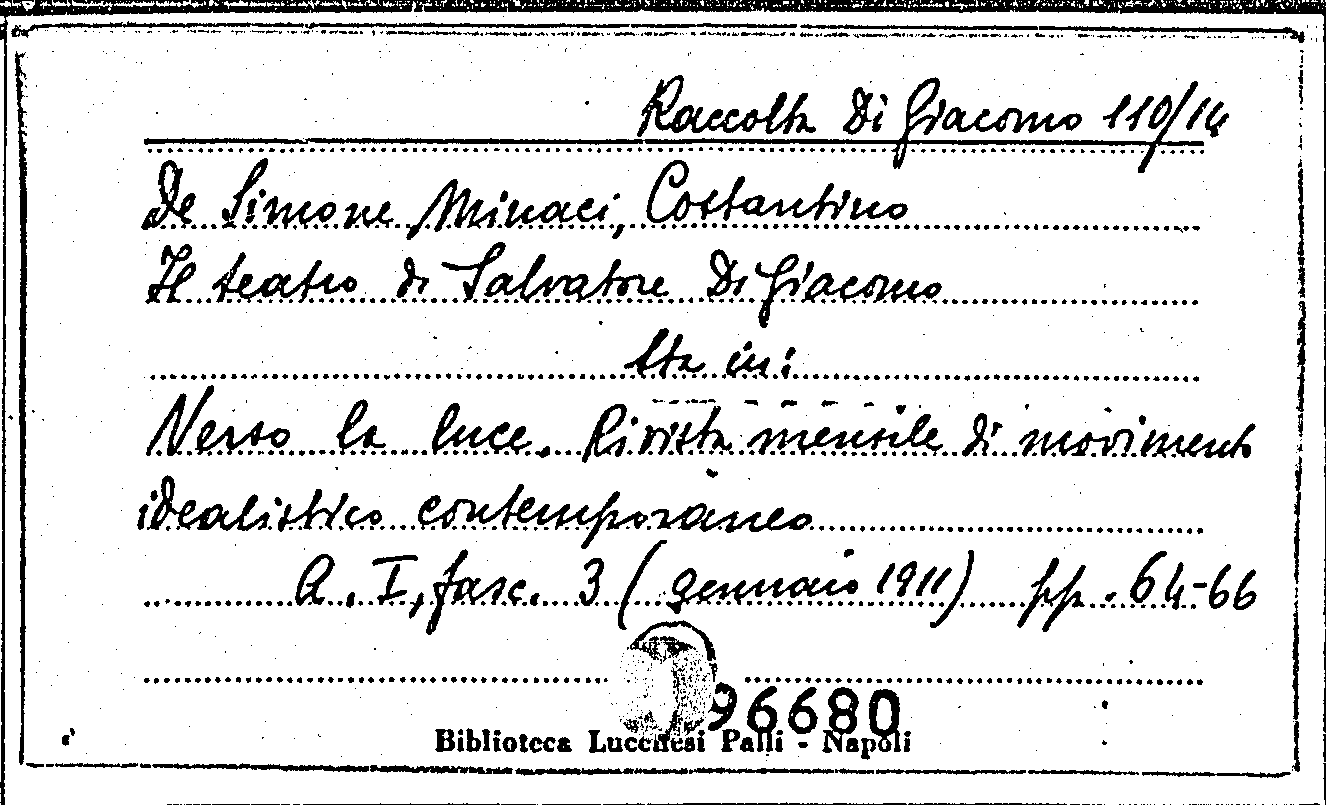 Raccolta Di Giacomo 110/14
De Simone Minaci, Costantino
Il teatro di Salvatore Di Giacomo
Sta in:
Verso la luce. Rivista mensile di movimento
idealistico contemporaneo
A. I, fasc. 3 (gennaio 1911) pp. 64-66
96680
Biblioteca Lucchesi Palli - Napoli